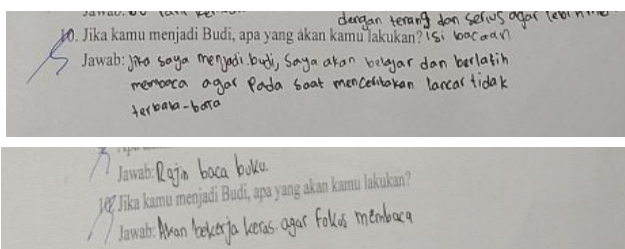 dengan terang dan serius agar lebih
10. Jika kamu menjadi Budi, apa yang akan kamu lakukan? isi bacaan
Jawab: jika saya menjadi budi, Saya akan belajar dan berlatih
membaca agar Pada saat menceritakan lancar tidak
terbata-bata
Jawab: Rajin baca buku.
10. Jika kamu menjadi Budi, apa yang akan kamu lakukan?
Jawab: Akan bekerja keras. agar fokus membaca